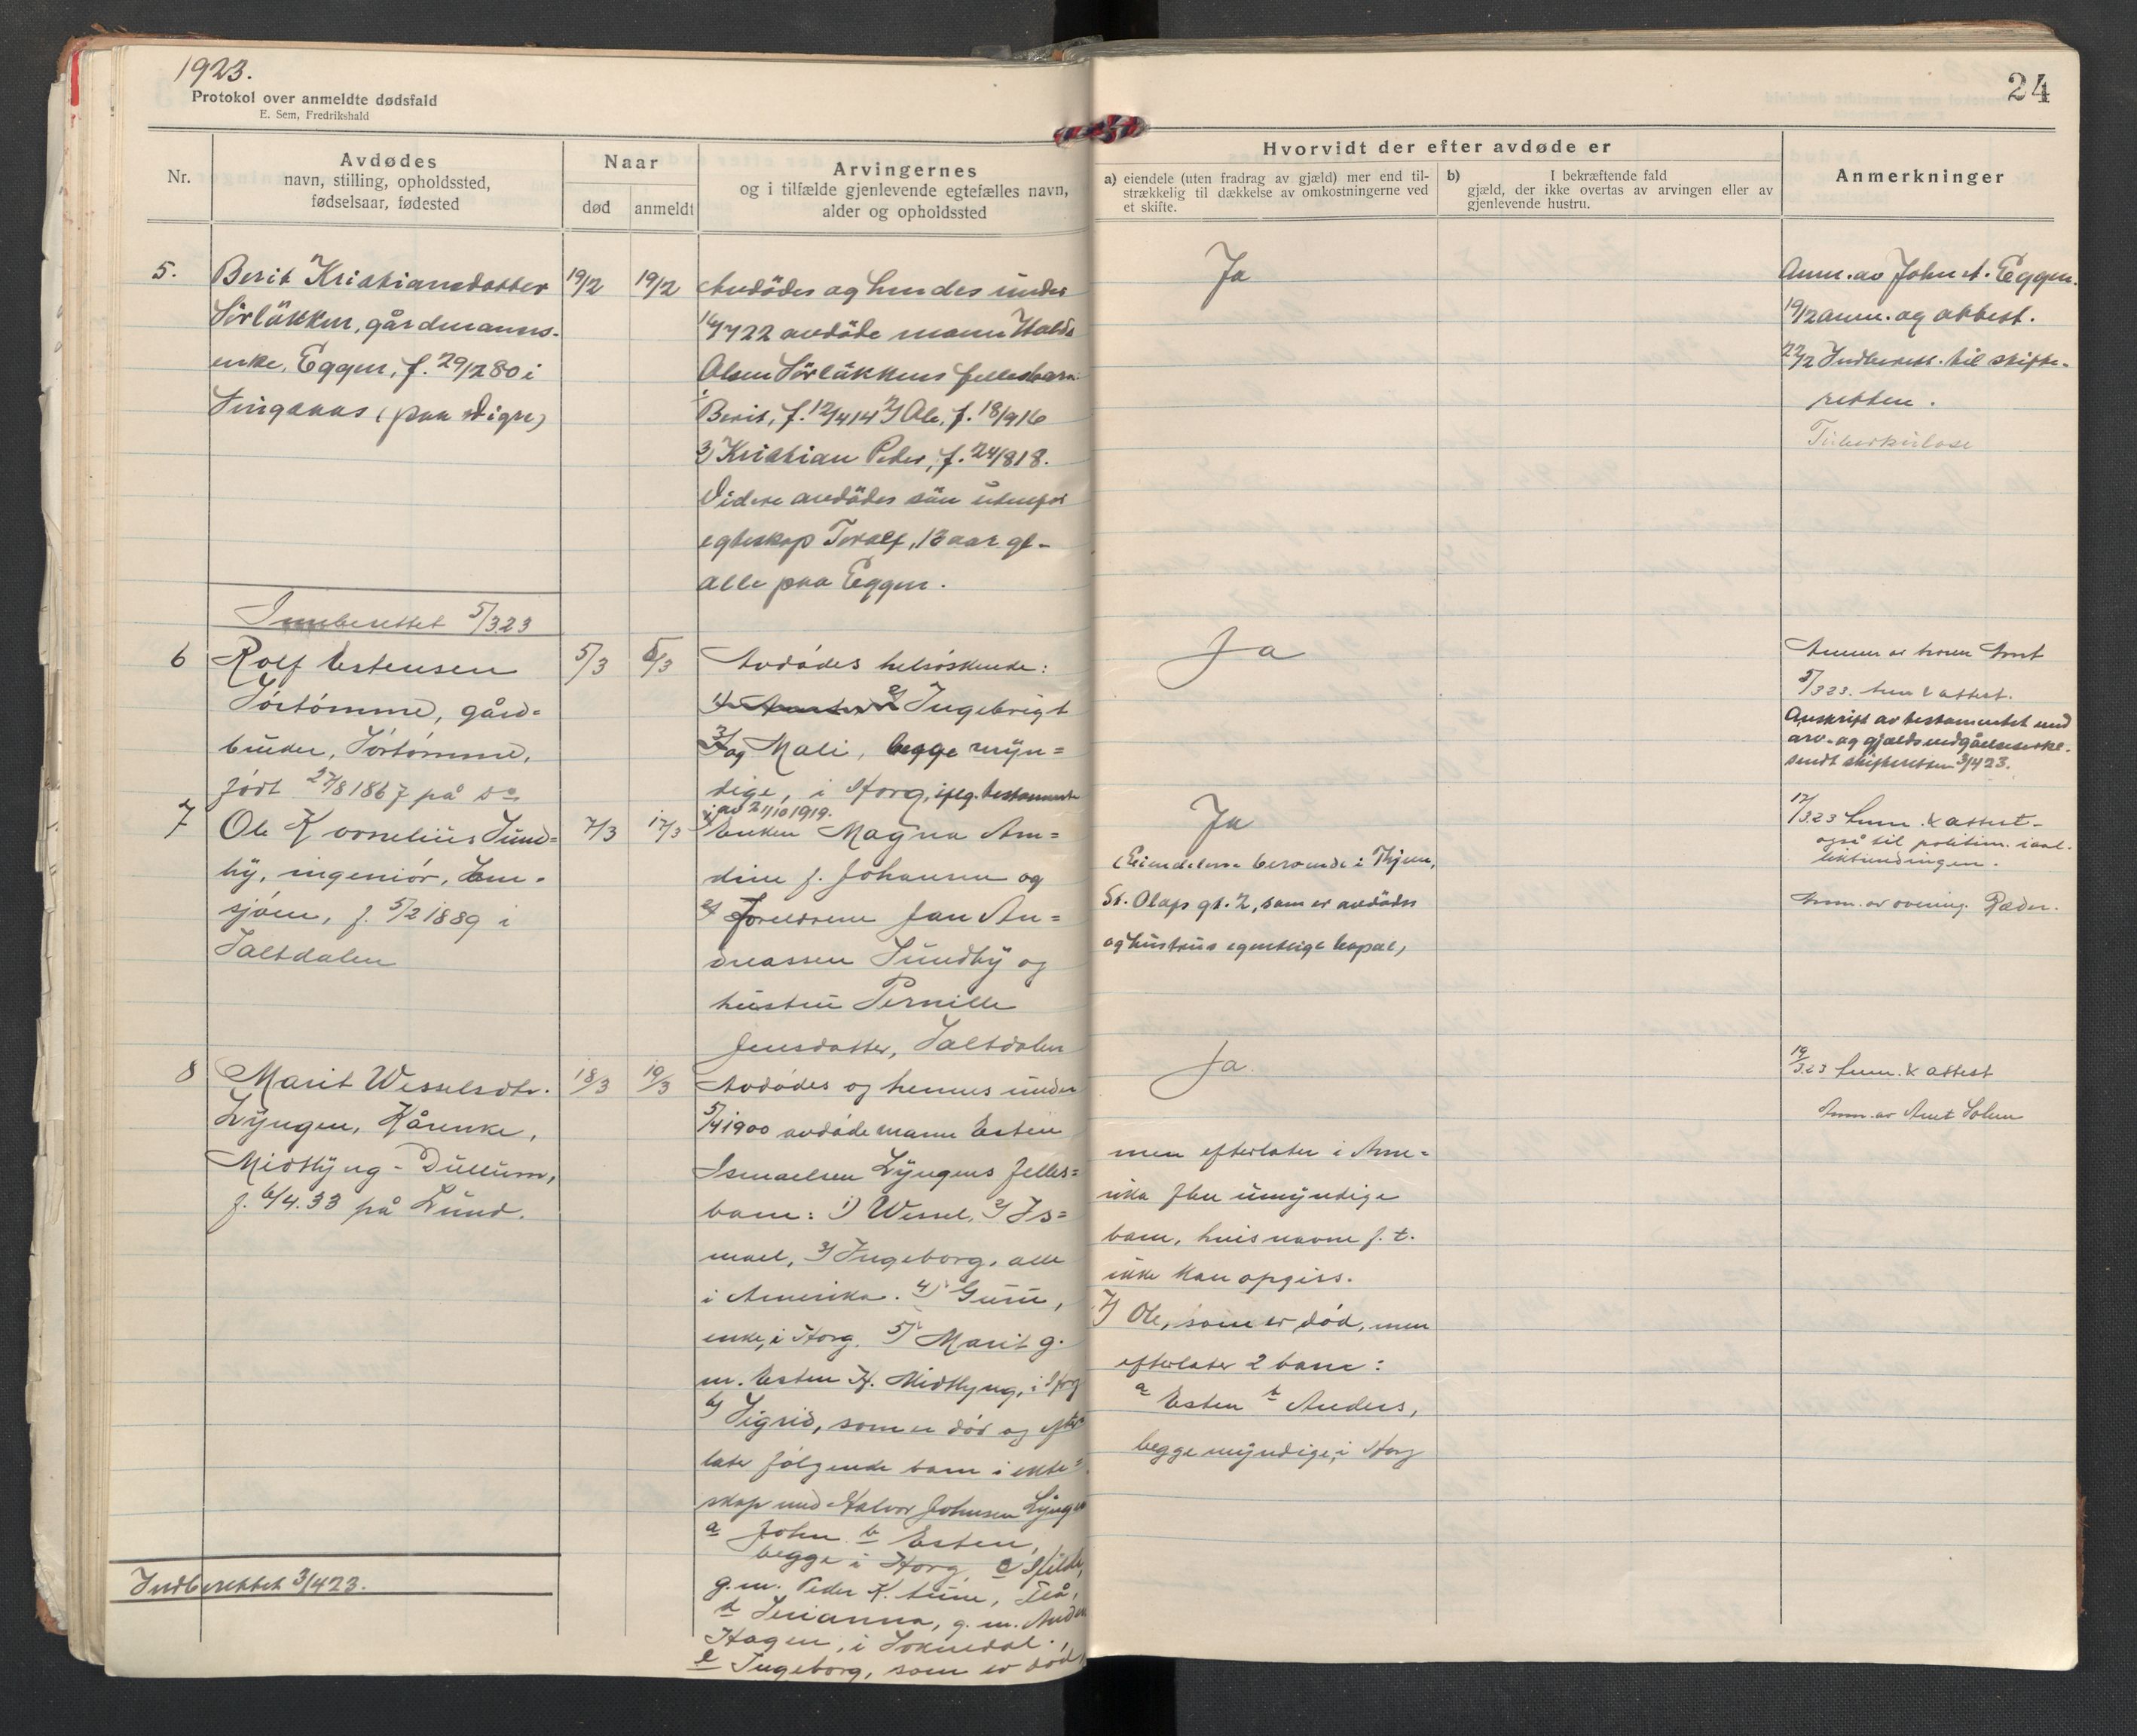 1923.
Protokol over anmeldte dødsfald
E. Sem, Fredrikshald
24
Nr.
Avdødes
navn, stilling, opholdssted,
fødselsaar, fødested
Naar
død
anmeldt
Arvingernes
og i tilfælde gjenlevende egtefælles navn,
alder og opholdssted
Hvorvidt der efter avdøde er
a) eiendele (uten fradrag av gjæld) mer end til-
strækkelig til dækkelse av omkostningerne ved
et skifte.
b) I bekræftende fald
gjæld, der ikke overtas av arvingen eller av
gjenlevende hustru.
Anmerkninger
5.
Berit Kristiansdatter
Sørløkken, gårdmanns-
enke, Eggen, f. 29/2 80 i
Singsaas (paa Digre)
19/2
19/2
Avdødes og hendes under
22 avdøde mann
Olsen Sørløkkens fellesbarn:
Berit, f. 12/4 14 2) Ole, f. 18/9 16
3) Kristian Peder, f. 24/8 18.
Videre avdødes søn utenfor
egteskap Toralf, 13 aar gl-
alle paa Eggen.
Ja
Anm. av John A. Eggen.
19/2 anm. og attest.
22/2 Indberett. til skifte-
retten.
Tuberkulose
Innberettet 5/3 23
6
Rolf Estensen
Sørtømme, gård-
bruker, Sørtømme,
født 27/8 1867 på do
5/3
5/3
Avdødes helsøskende:
2) Ingebrigt
3) og Mali, begge myn=
dige, i Horg, iflg. testamente
av 21/10 1919.
Ja
5/3 23. Anm & attest.
Avskrift av testamentet med
arv- og gjeldsvedgåelseserkl.
sendt skifteretten 3/4 23.
7
Ole Kornelius Sund=
by, ingeniør,
f. 5/2 1889 i
Saltdalen
7/3
17/3
1) Enken Magna Am=
dine f. Johansen og
2) Foreldrene Jan An=
dreassen Sundby og
hustru Pernille
Jensdatter, Saltdalen
Ja
(Eiendelene beroende i Thjem,
St. Olafs gt. 2, som er avdødes
og hustrus egentlige bopæl)
17/3 23 Anm. & attest -
også til politim. i anl.
liktendingen.
Anm. av overing. Ræder.
8
Marit Wesselsdtr.
Lyngen, Kårenke,
Midtlyng - Dullum,
f. 6/4.33 på Lund.
18/3
19/3
Avdødes og hennes under
5/4 1900 avdøde mann Esten
Ismaelsen Lyngens felles=
barn: 1) Wessel, 2) Is=
mael, 3) Ingeborg, alle
i Amerika. 4) Guru,
enke, i Horg. 5) Marit g.
m. Esten H. Midtlyng, i Horg
6) Sigrid, som er død og efter
later følgende barn i ekte=
skap med Halvor Johnsen Lyngen
a John b Esten,
begge i Horg, c
g.m. Peder K. Flå,
d g.m. Anders
Hagen, i Soknedal.,
e Ingeborg, som er død,
Ja.
men efterlater i Ame=
rika flere umyndige
barn, hvis navne f.t.
ikke kan opgiss.
7) Ole, som er død, men
efterlater 2 barn:
a Esten b Anders,
begge myndige, i Horg
19/3 23 Anm. & attest
Anm. av Arnt Solem
Indberettet 3/4 23.